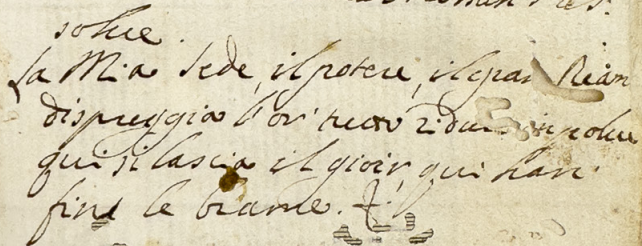 solue.
La Mia Sede, il potere, il gran
dispreggia l'or' tutto riduce in polue
qui si lascia il gioir, qui han
fine le brame.